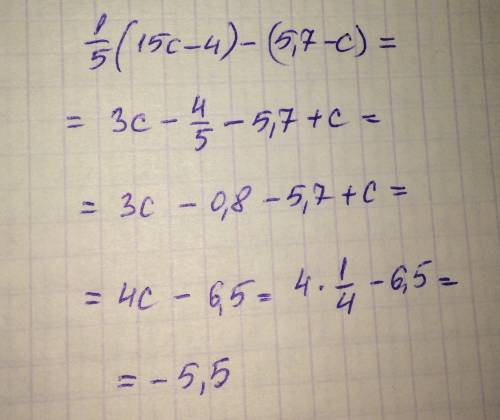 1/5(15c-4)-(5,7-c)=
= 3c - 4/5 - 5,7+c =
= 3c - 0,8 - 5,7 + c =
= 4c - 6,5 = 4 · 1/4 - 6,5 =
= - 5,5